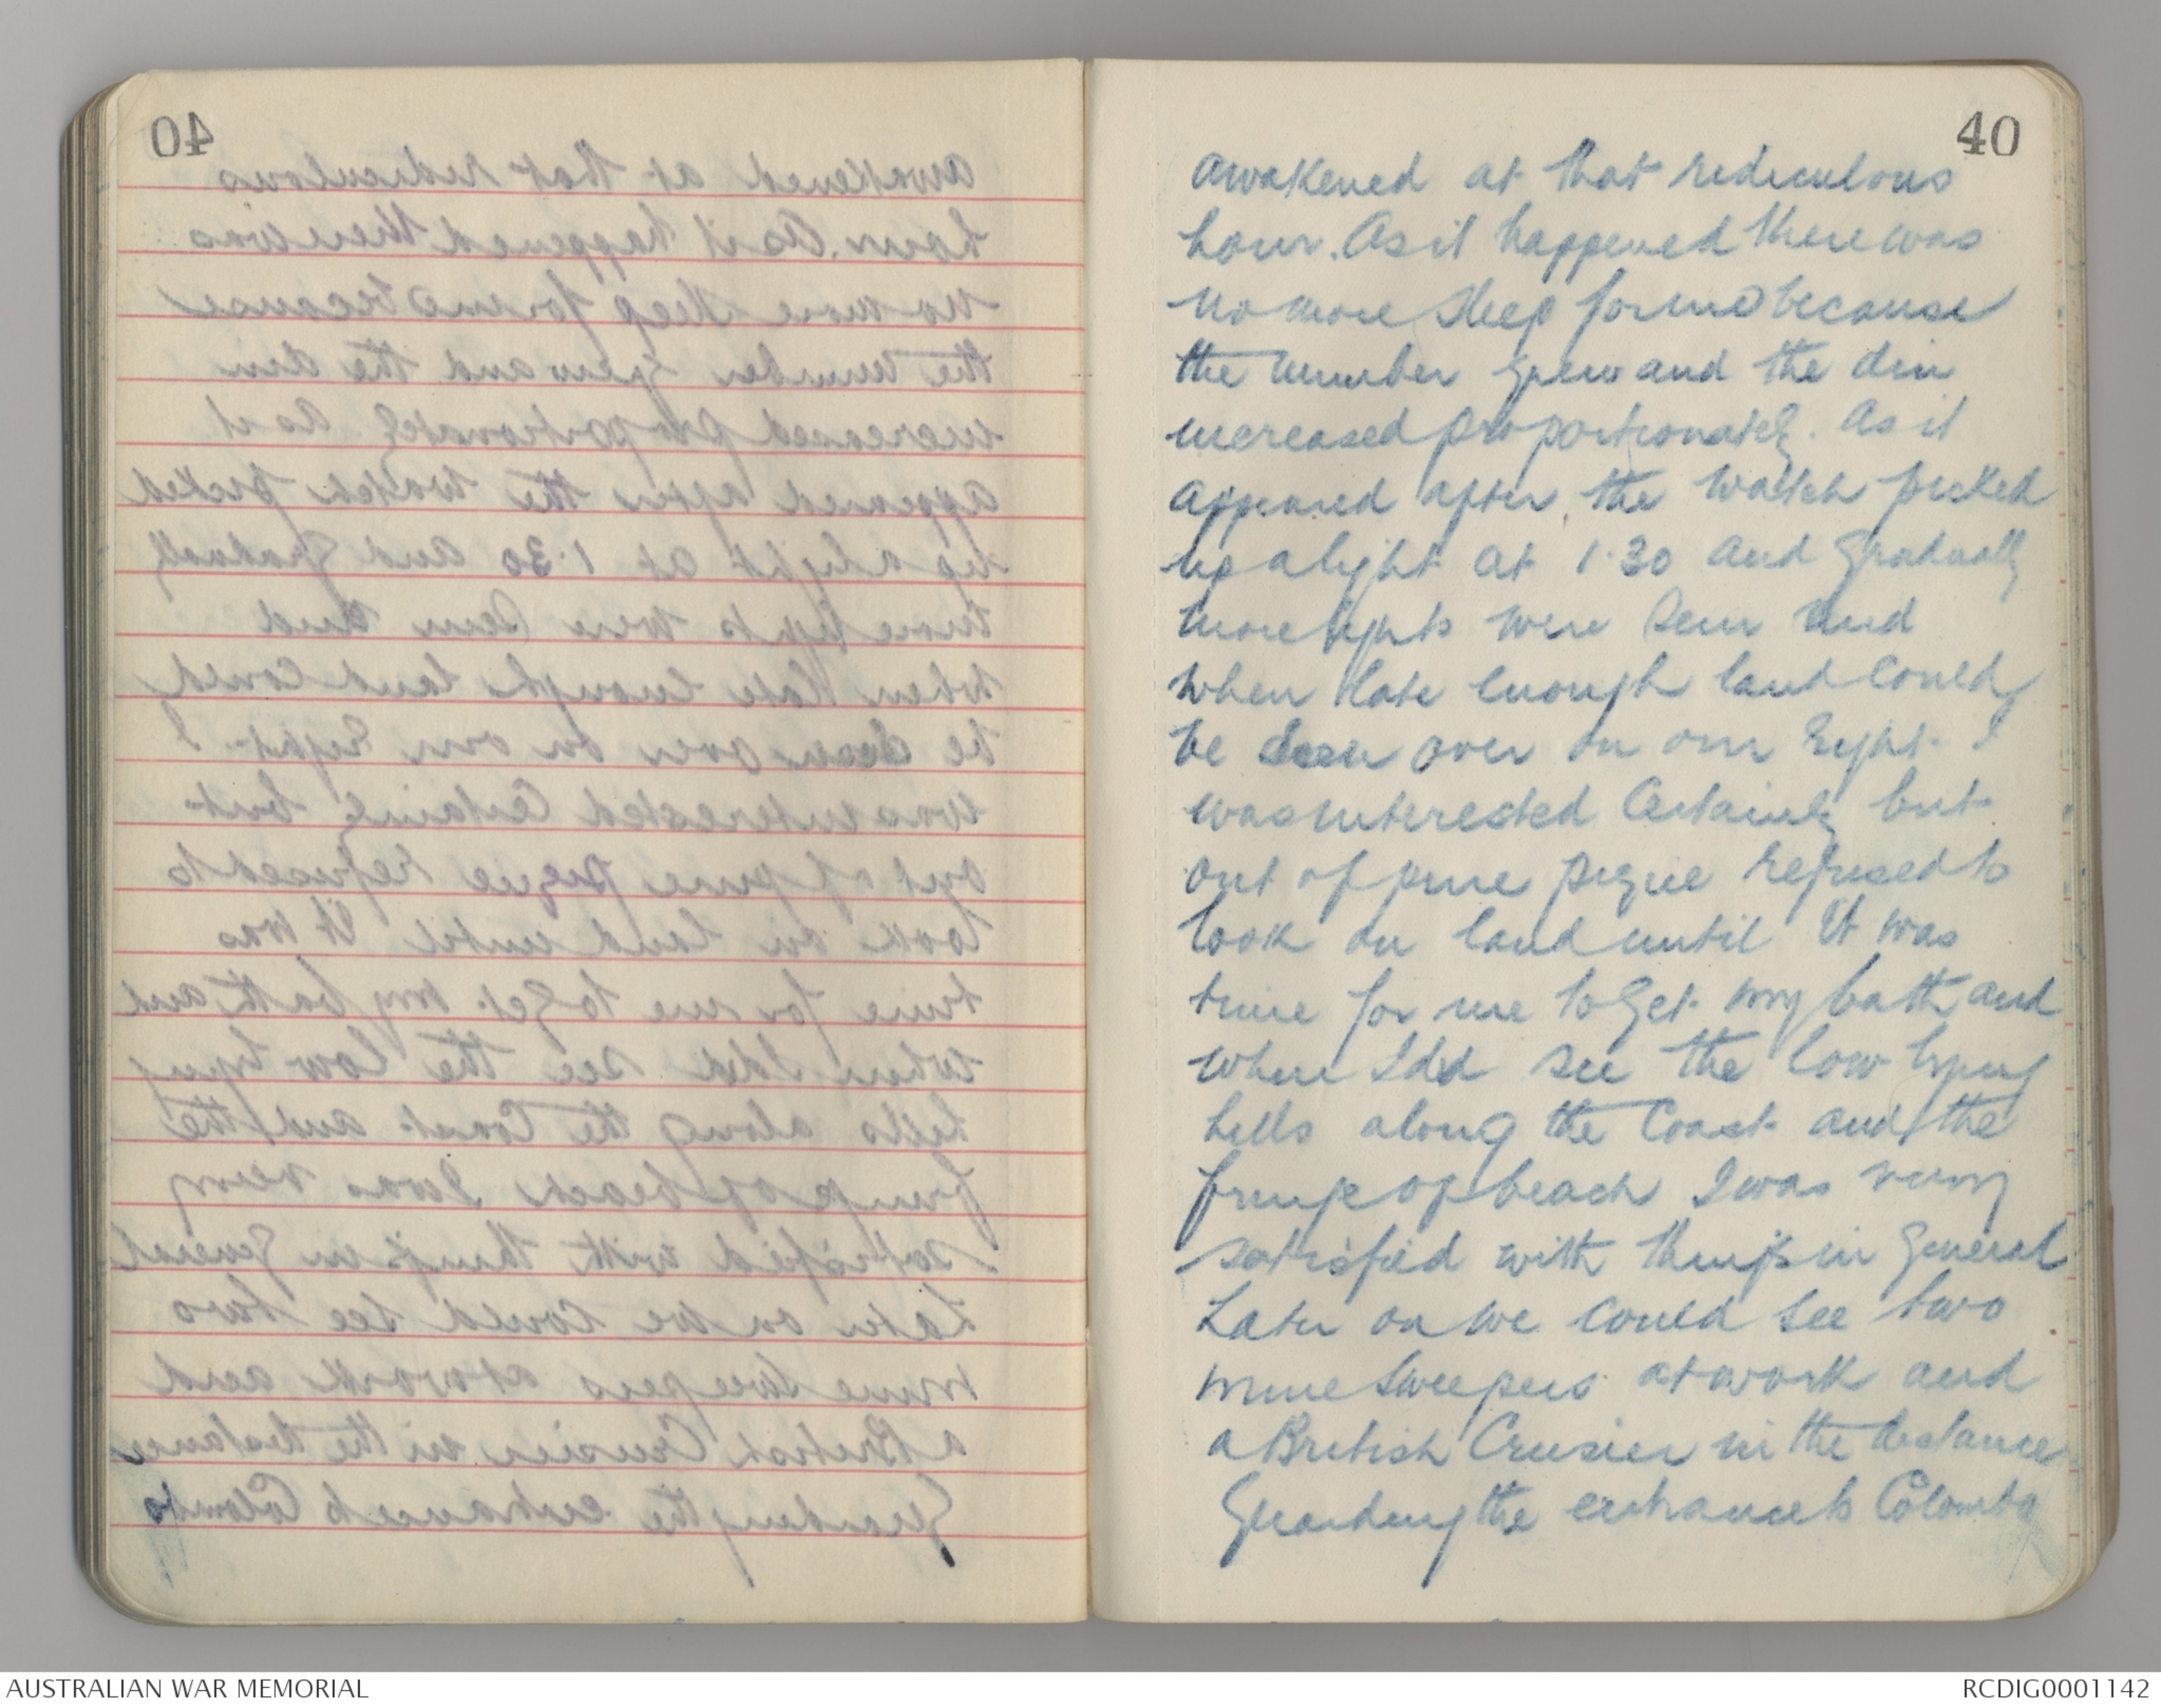 40
awakened at that rediculous
hour. As it happened there was
no more sleep for me because
the number grew and the din
increased proportionately. As it
appeared after the watch picked
up a light at 1.30 and gradually
more lights were seen and
when late enough land could
be seen over on our right. I
was interested certainly but
out of pure pique refused to
look on land until it was
time for me to get my bath and
when I did see the low lying
hills along the coast and the
fringe of beach I was very
satisfied with things in general
Later on we could see two
mine sweepers at work and
a British Crusier in the distance
guarding the entrance to Colombo
AUSTRALIAN WAR MEMORIAL
RCDIG0001142